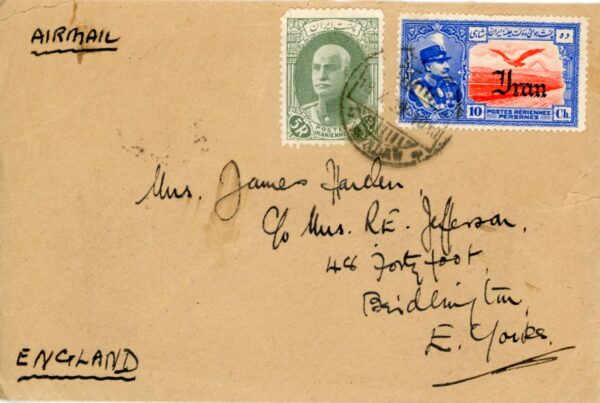 AIRMAIL
پست ایران
5R
POSTES
IRANIENNES
ده
شاهی
Iran
10
POSTES AÉRIENNES
PERSANES
Ch.
Mrs. James Harden,
c/o Mrs. R.E. Jefferson,
48 Fortyfoot,
Bridlington,
E. Yorks.
ENGLAND